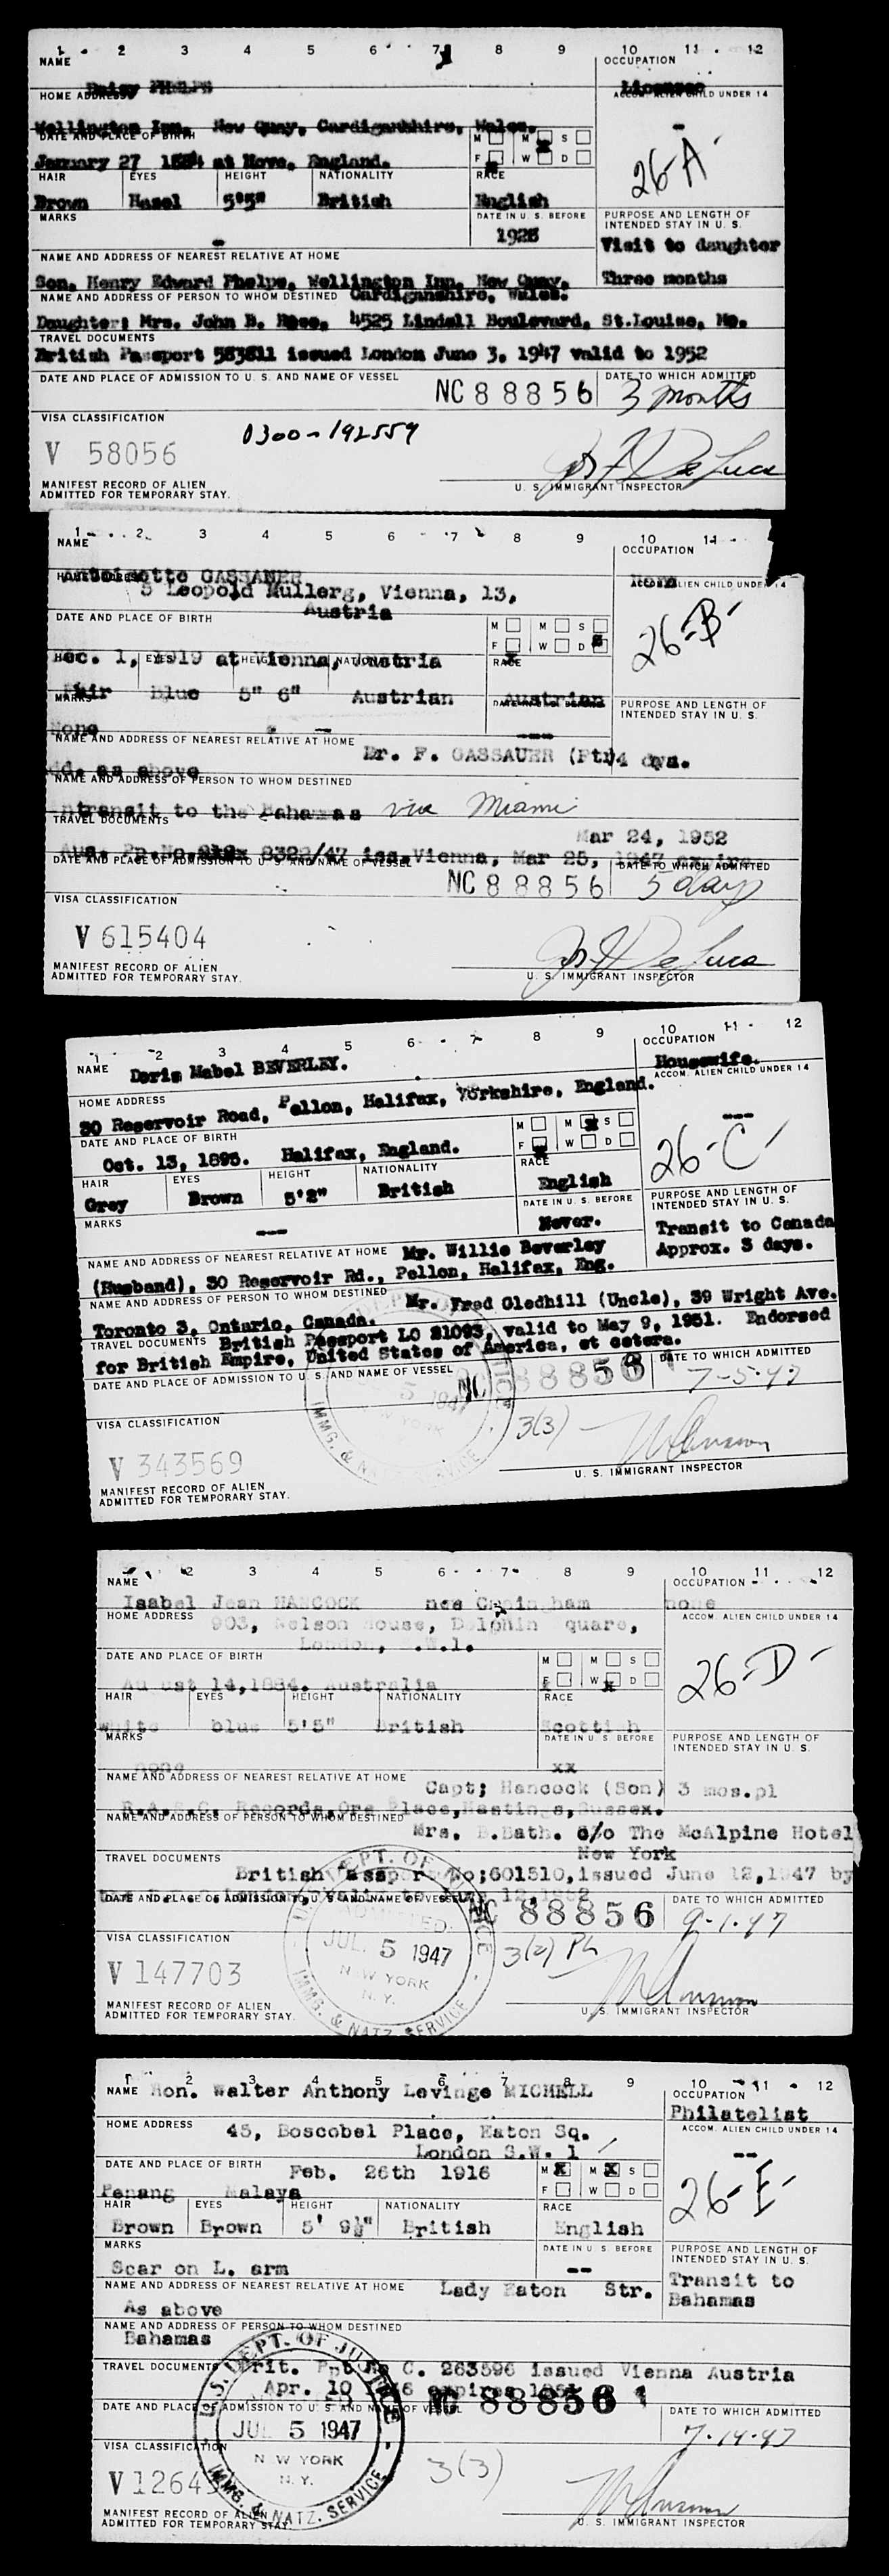 1 2 3 4 5 6 7 8 9 10 11 12
NAME OCCUPATION
Daisy PHELPS Licensee
HOME ADDRESS ACCOM. ALIEN CHILD UNDER 14
Wellington Inn, New Quay, Cardiganshire, Wales.
DATE AND PLACE OF BIRTH M M S
January 27 1884 at Hove, England. F W D
26-A-
HAIR EYES HEIGHT NATIONALITY RACE
Brown Hazel 5'5" British English
MARKS DATE IN U. S. BEFORE PURPOSE AND LENGTH OF INTENDED STAY IN U. S.
- 1928 Visit to daughter
NAME AND ADDRESS OF NEAREST RELATIVE AT HOME
Son, Henry Edward Phelps, Wellington Inn, New Quay, Three months
NAME AND ADDRESS OF PERSON TO WHOM DESTINED Cardiganshire, Wales.
Daughter: Mrs. John B. 4525 Lindell Boulevard, St.Louise, Mo.
TRAVEL DOCUMENTS
British Passport 583811 issued London June 3, 1947 valid to 1952
DATE AND PLACE OF ADMISSION TO U. S. AND NAME OF VESSEL NC 88856 DATE TO WHICH ADMITTED
3 months
VISA CLASSIFICATION
V 58056 0300-192559
MANIFEST RECORD OF ALIEN
ADMITTED FOR TEMPORARY STAY. U. S. IMMIGRANT INSPECTOR
1 2 3 4 5 6 7 8 9 10 11
NAME OCCUPATION
Antoinette GASSAUER None
HOME ADDRESS ACCOM. ALIEN CHILD UNDER 14
5 Leopold Mullerg, Vienna, 13,
Austria
DATE AND PLACE OF BIRTH M M S
F W D
26-B-
Dec. 1, 1919 at Vienna, Austria
HAIR EYES HEIGHT NATIONALITY RACE
Fair Blue 5" 6" Austrian Austrian
MARKS DATE IN U. S. BEFORE PURPOSE AND LENGTH OF INTENDED STAY IN U. S.
None - ---
NAME AND ADDRESS OF NEAREST RELATIVE AT HOME Dr. F. GASSAUER (Ft) 4 dys.
dd. as above
NAME AND ADDRESS OF PERSON TO WHOM DESTINED
ntransit to the Bahamas via Miami
TRAVEL DOCUMENTS Mar 24, 1952
Aus. Pp.No. 8322/47 iss.Vienna, Mar 25, 1947 expire
DATE AND PLACE OF ADMISSION TO U. S. AND NAME OF VESSEL DATE TO WHICH ADMITTED
NC 88856 5 days
VISA CLASSIFICATION
V 615404
MANIFEST RECORD OF ALIEN
ADMITTED FOR TEMPORARY STAY. U. S. IMMIGRANT INSPECTOR
1 2 3 4 5 6 7 8 9 10 11 12
NAME Doris Mabel BEVERLEY. OCCUPATION
Housewife.
HOME ADDRESS ACCOM. ALIEN CHILD UNDER 14
30 Reservoir Road, Pellon, Halifax, Yorkshire, England.
DATE AND PLACE OF BIRTH M M S ---
Oct. 13, 1895. Halifax, England. F W D
26-C-
HAIR EYES HEIGHT NATIONALITY RACE
Grey Brown 5'2" British English
MARKS DATE IN U. S. BEFORE PURPOSE AND LENGTH OF INTENDED STAY IN U. S.
--- Never. Transit to Canada
NAME AND ADDRESS OF NEAREST RELATIVE AT HOME Mr. Willie Beverley Approx. 3 days.
(Husband), 30 Reservoir Rd., Pellon, Halifax, Eng.
NAME AND ADDRESS OF PERSON TO WHOM DESTINED Mr. Fred Gledhill (Uncle), 39 Wright Ave.
Toronto 3, Ontario, Canada.
TRAVEL DOCUMENTS British Passport LO 21093, valid to May 9, 1951. Endorsed
for British Empire, United States of America, et cetera.
DATE AND PLACE OF ADMISSION TO U. S. AND NAME OF VESSEL NC 88856 1 DATE TO WHICH ADMITTED
5 1947 7-5-47
VISA CLASSIFICATION 3(3)
V 343569
IMMG. & SERVICE
MANIFEST RECORD OF ALIEN
ADMITTED FOR TEMPORARY STAY. U. S. IMMIGRANT INSPECTOR
2 3 4 5 6 7 8 9 10 11 12
NAME OCCUPATION
Isabel Jean HANCOCK nee ham none
HOME ADDRESS ACCOM. ALIEN CHILD UNDER 14
903, elson ouse, D lphin quare,
London, .W.1.
DATE AND PLACE OF BIRTH M M S
Au ust 14,1884. Australia F W D
26-D-
HAIR EYES HEIGHT NATIONALITY RACE
white blue 5'5" British Scotti h
MARKS DATE IN U. S. BEFORE PURPOSE AND LENGTH OF INTENDED STAY IN U. S.
none xx
NAME AND ADDRESS OF NEAREST RELATIVE AT HOME Capt; Hancock (Son) 3 mos.pl
R.A.S.C. Records,Ore Place,Hastings,Sussex.
NAME AND ADDRESS OF PERSON TO WHOM DESTINED Mrs. B.Bath. c/o The McAlpine Hotel
New York
TRAVEL DOCUMENTS British assport No;601510,issued June 12,1947 by
12,1952
DATE AND PLACE OF ADMISSION TO U. S. AND NAME OF VESSEL NC 88856 DATE TO WHICH ADMITTED
9-1-47
VISA CLASSIFICATION JUL 5 1947 3(2) PL
V 147703 NEW YORK N. Y.
IMMG. & NATZ. SERVICE
MANIFEST RECORD OF ALIEN
ADMITTED FOR TEMPORARY STAY. U. S. IMMIGRANT INSPECTOR
1 2 3 4 5 6 7 8 9 10 11 12
NAME Hon. Walter Anthony Levinge MICHELL OCCUPATION
Philatelist
HOME ADDRESS 45, Boscobel Place, Eaton Sq. ACCOM. ALIEN CHILD UNDER 14
London S.W. 1 --
DATE AND PLACE OF BIRTH Feb. 26th 1916 M M S
Penang Malaya F W D
26-E-
HAIR EYES HEIGHT NATIONALITY RACE
Brown Brown 5' 9½" British English
MARKS DATE IN U. S. BEFORE PURPOSE AND LENGTH OF INTENDED STAY IN U. S.
Scar on L. arm --
NAME AND ADDRESS OF NEAREST RELATIVE AT HOME Lady Eaton Str. Transit to
As above Bahamas
NAME AND ADDRESS OF PERSON TO WHOM DESTINED
Bahamas
U. S. DEPT. OF JUSTICE
TRAVEL DOCUMENTS Brit. Ppt No C. 263596 issued Vienna Austria
Apr. 10 expires
DATE AND PLACE OF ADMISSION TO U. S. AND NAME OF VESSEL NC 88856 1 DATE TO WHICH ADMITTED
JUL 5 1947 7-14-47
VISA CLASSIFICATION N W YORK N. Y. 3(3)
V 1264
IMMG. & NATZ. SERVICE
MANIFEST RECORD OF ALIEN
ADMITTED FOR TEMPORARY STAY U. S. IMMIGRANT INSPECTOR